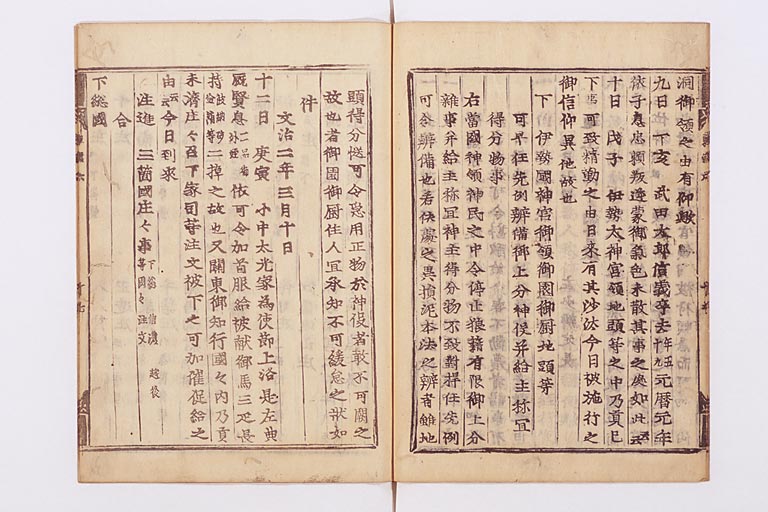 洞御領之由有仰歟
九日 丁亥 武田太郎信義卒去年五十九元暦元年
依子息忠頼叛逆蒙御氣色未散其事之處如此云云
十日 戊子 伊勢太神宮領地頭等之中乃貢已
下事可致精勤之由日來有其沙汰今日被施行之
御信仰異他故也
下 伊勢國神宮御領御園御厨地頭等
可早任先例辨備御上分神役并給主祢宜
得分物事
右當國神領神民之中令停止狼藉有限御上分
雜事并給主祢宜神主得分物不致對捍任先例
可令辨備也若依處之異損泥本法之辨者雖地
頭得分慥可令忩用正物於神役者敢不可闕之
故也者御園御厨住人宜承知不可緩怠之状如
件
文治二年三月十日
十二日 庚寅 小中太光家為使節上洛是左典
厩賢息二品若依可令加首服給被献御馬三疋長
持二棹之故也又關東御知行國々内乃貢
未濟庄々召下家司等注文被下之可加催促給之
由云云今日到來
注進 三箇國庄々事下総 信濃 越後等國々注文
合
下総國